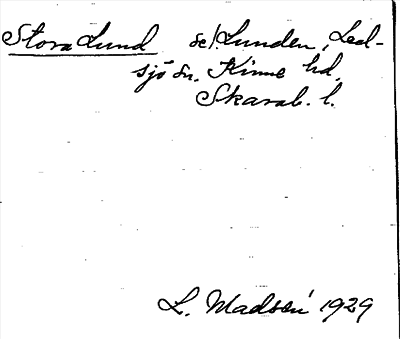 Stora Lund se/. Lunden, Led-
sjö sn. Kinne hd.
Skarab. l.
L. Madsén 1929